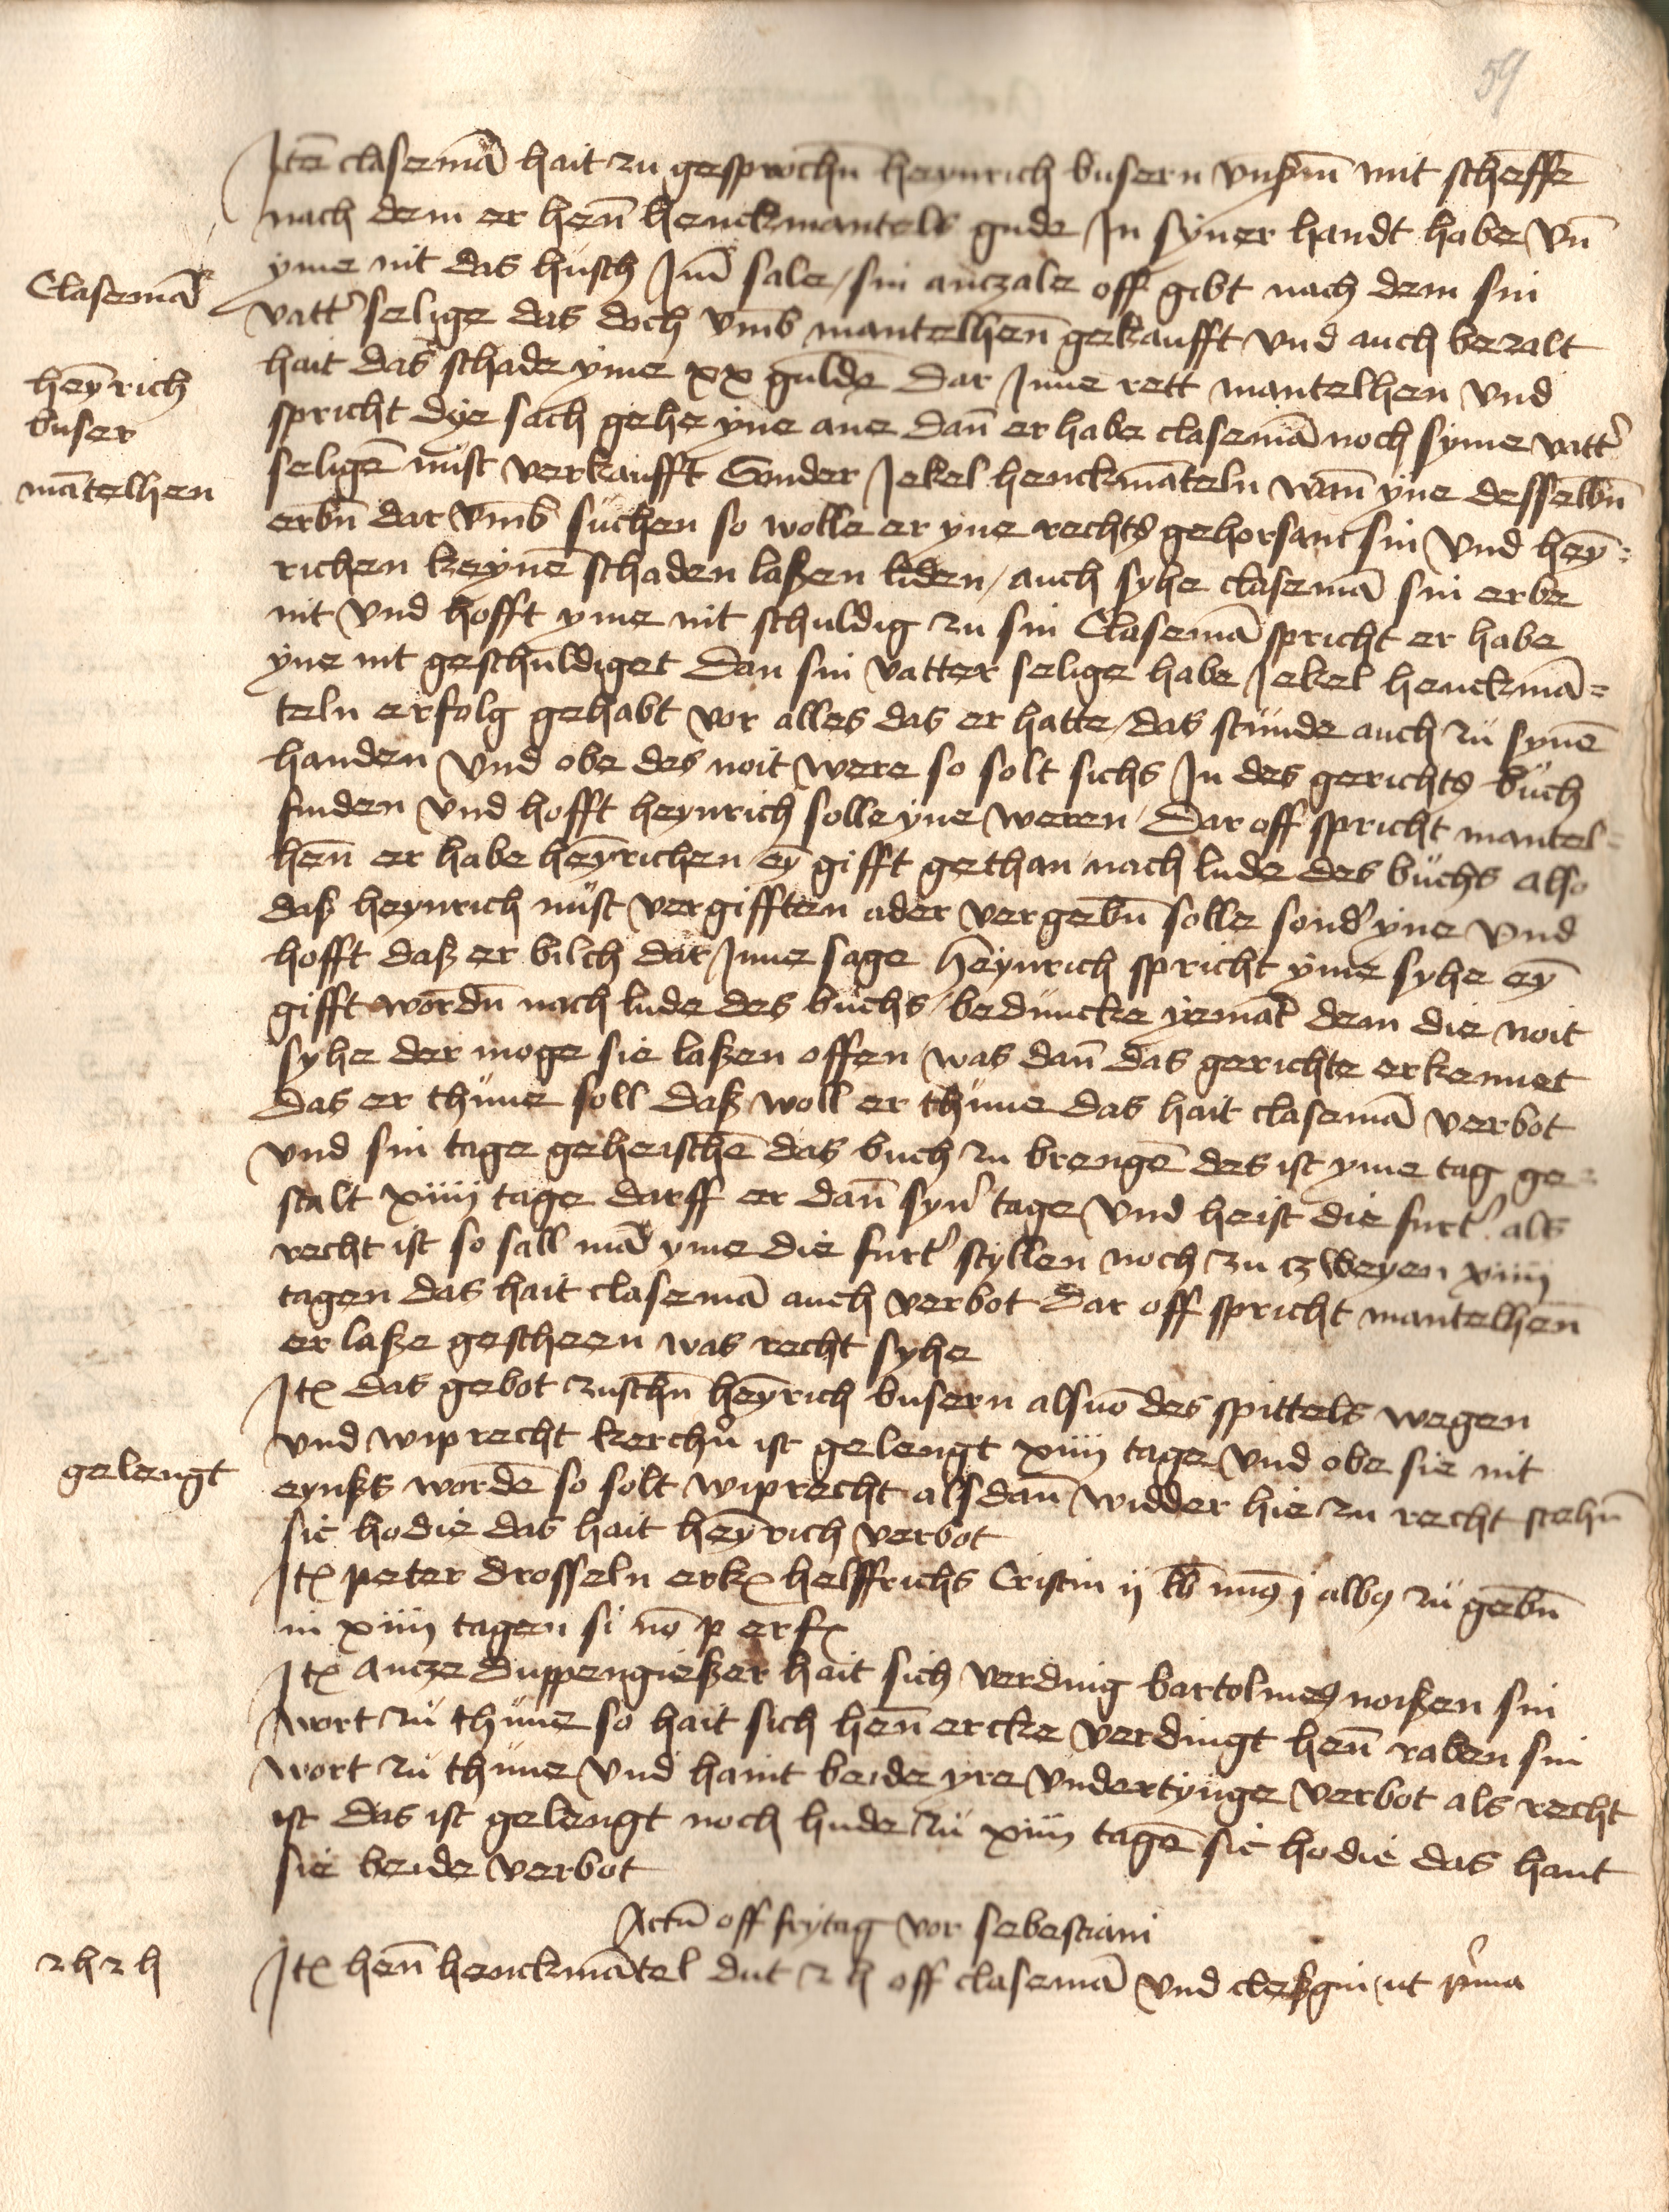 59
Itē clasemā hait zu gesprochn̄ heynrich busern vnsm̄ mit scheffē
nach dem er hen̄ henckmantels gude In syner handt habe vn̄
yme nit das husch Im̄ sale / sin anczale off gibt nach dem sin
Clasemā
vatt' selige das doch vmb mantelhen̄ gekaufft vnd auch bezalt
hait das schade yme xx guldē Dar Inne rett mantelhen vnd
heȳrich
buser
spricht dye sach gehe yne ane dan̄ er habe clasemā noch syme vatt'
mātelhen
seligē nust verkaufft Sonder Jekel henckmāteln wan̄ yne desselbn̄
erbn̄ dar vmb suchen so wolle er yne rechts gehorsam sin vnd hey=
richen keynē schaden laßen liden / auch syhe clasemā sin erbe
nit vnd hofft yme nit schuldig zu sin Clasemā spricht er habe
yne nit geschuldiget Dan sin vatter selige habe Jekel henckmā=
teln erfolg gehabt vor alles das er hatte / das stunde auch zu synē
handen vnd obe des noit were so solt sichs In des gerichts buch
finden vnd hofft heynrich solle yne weren / Dar off spricht mantel=
hen̄ er habe heȳrichen eȳ gifft gethan nach lude des buchs also
daß heynrich nust vergifften ader vergebn̄ solle sond' yne vnd
hofft daß er bilch dar Inne sage Heynrich spricht yme syhe eȳ
gifft wordn̄ nach lude des buchs / beduncke yemāt dem die noit
syhe der moge sie laßen offen was dan̄ das gerichte erkennet
das er thune soll daß woll er thune das hait clasemā verbot
vnd sin tage geheischē das buch zu brengē des ist yme tag ge=
stalt xiiii tage darff er dan̄ syn' tage vnd heist die furt' als
recht ist so sall mā yme die furt' styllen noch zu czweyen xiiii
tagen das hait clasemā auch verbot Dar off spricht mantelhen̄
er laße gescheen was recht syhe
Itē das gebot zuschn̄ heȳrich busern als vō des spittels wegen
vnd wiprecht kerchn̄ ist gelengt xiiii tage vnd obe sie nit
gelengt
eynßts wordē so solt wiprecht alsdan̄ widder hie zu recht stehn̄
sic hodie das hait heȳrich verbot
Itē peter drosseln erkē helffrichs Cristin ij lb mīq j albq zu gebn̄
in xiiii tagen si nō p erfē
Itē ancze duppengießer hait sich verding bartolmeq noißen sin
wort zu thune so hait sich hen̄ ercke verdingt hen̄ raben sin
wort zu thune vnd haint beide yre vndertynge verbot als recht
ist das ist gelengt noch hude zu xiiii tagē sic hodie das hant
sie beide verbot
Actū off frytag vor sebestiani
2 h 2 h
Itē hen̄ henckmātel dut 2 h off clasemā vnd cleßgin ut p'ma